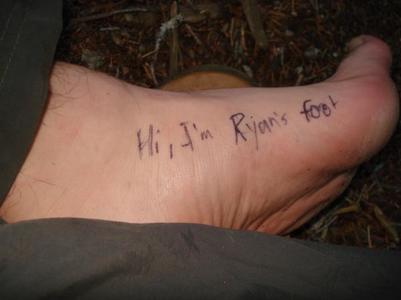 Hi, I'm Ryan's foot